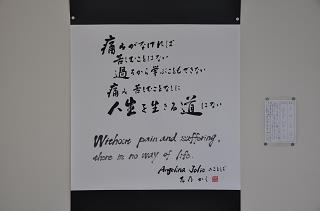 痛みがなければ
苦しむことはない
過ちから学ぶこともできない
痛み 苦しむことなしに
人生を生きる道はない
Without pain and suffering,
there is no way of life.
Angelina Jolie のことば